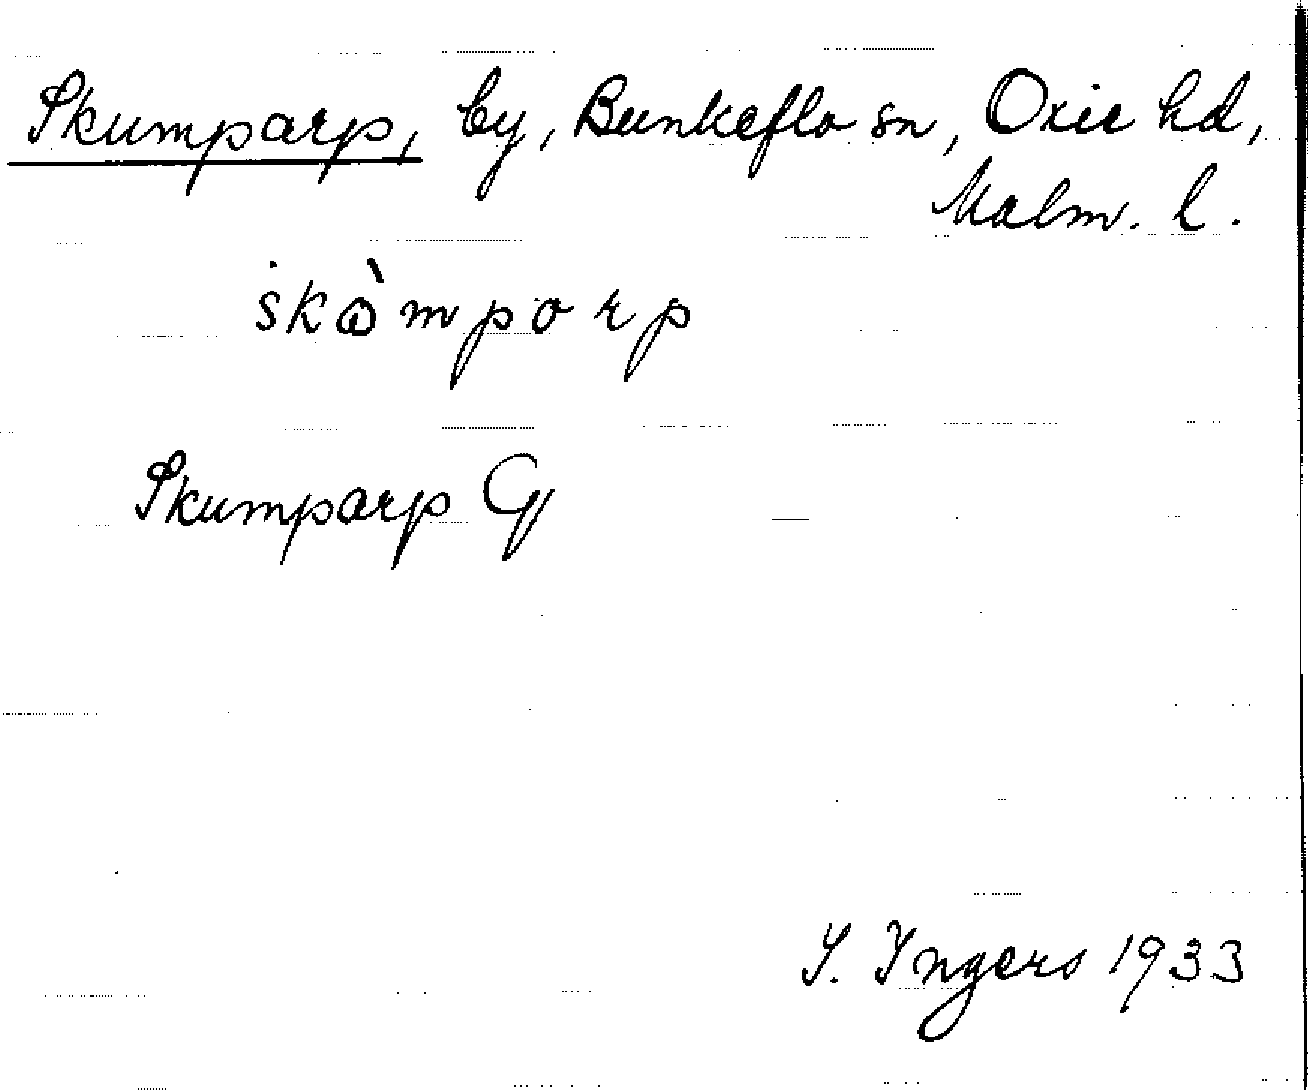 Skumparp, by, Bunkeflo sn, Oxie hd,
Malm. l.
skòmporp
Skumparp Gj
I. Ingers 1933